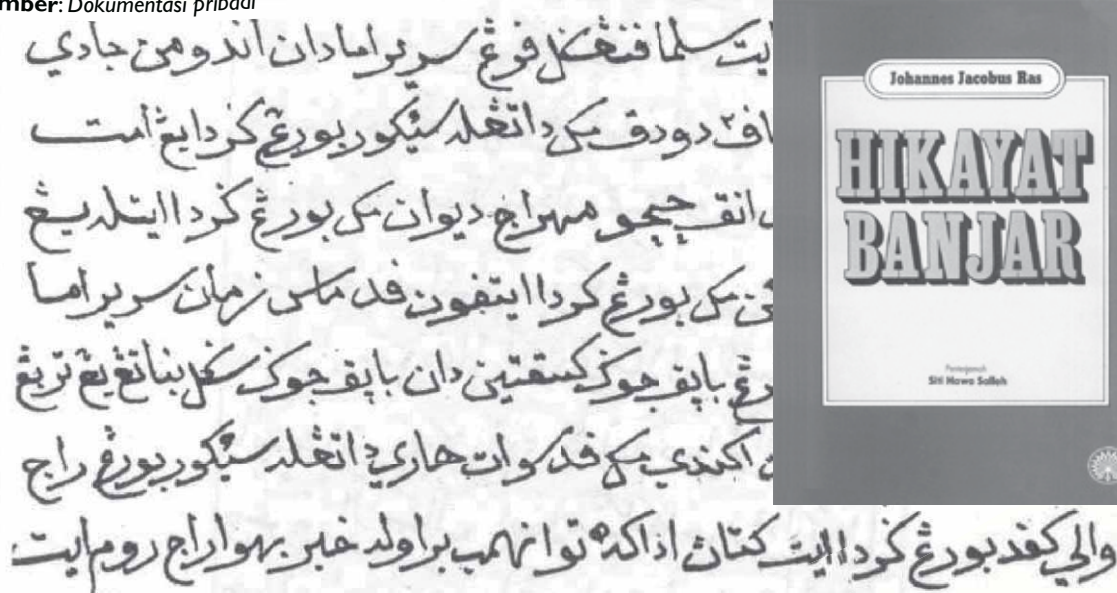 mber: Dokumentasi pribadi
ايت سلما فتڠݢل فرڠ سري راما دان اندومن جادي
دودق مک داتڠله سئيكور بورڠ كردا يڠ امت
انق چوچو مهراج ديوان مک بورڠ كردا ايتله يڠ
مک بورڠ كردا ايتفون فد ماس زمان سري راما
باپق جوك كسقتين دان باپق جوك سكل بناتڠ يڠ تربڠ
اكندي مک فد سوات هاري داتڠله سئيكور بورڠ راج
والي كفد بورڠ كردا ايت كتاڽ اداكه توانهمب براوله خبر بهوا راج روم ايت
Johannes Jacobus Ras
HIKAYAT
BANJAR
Siti Hawa Salleh